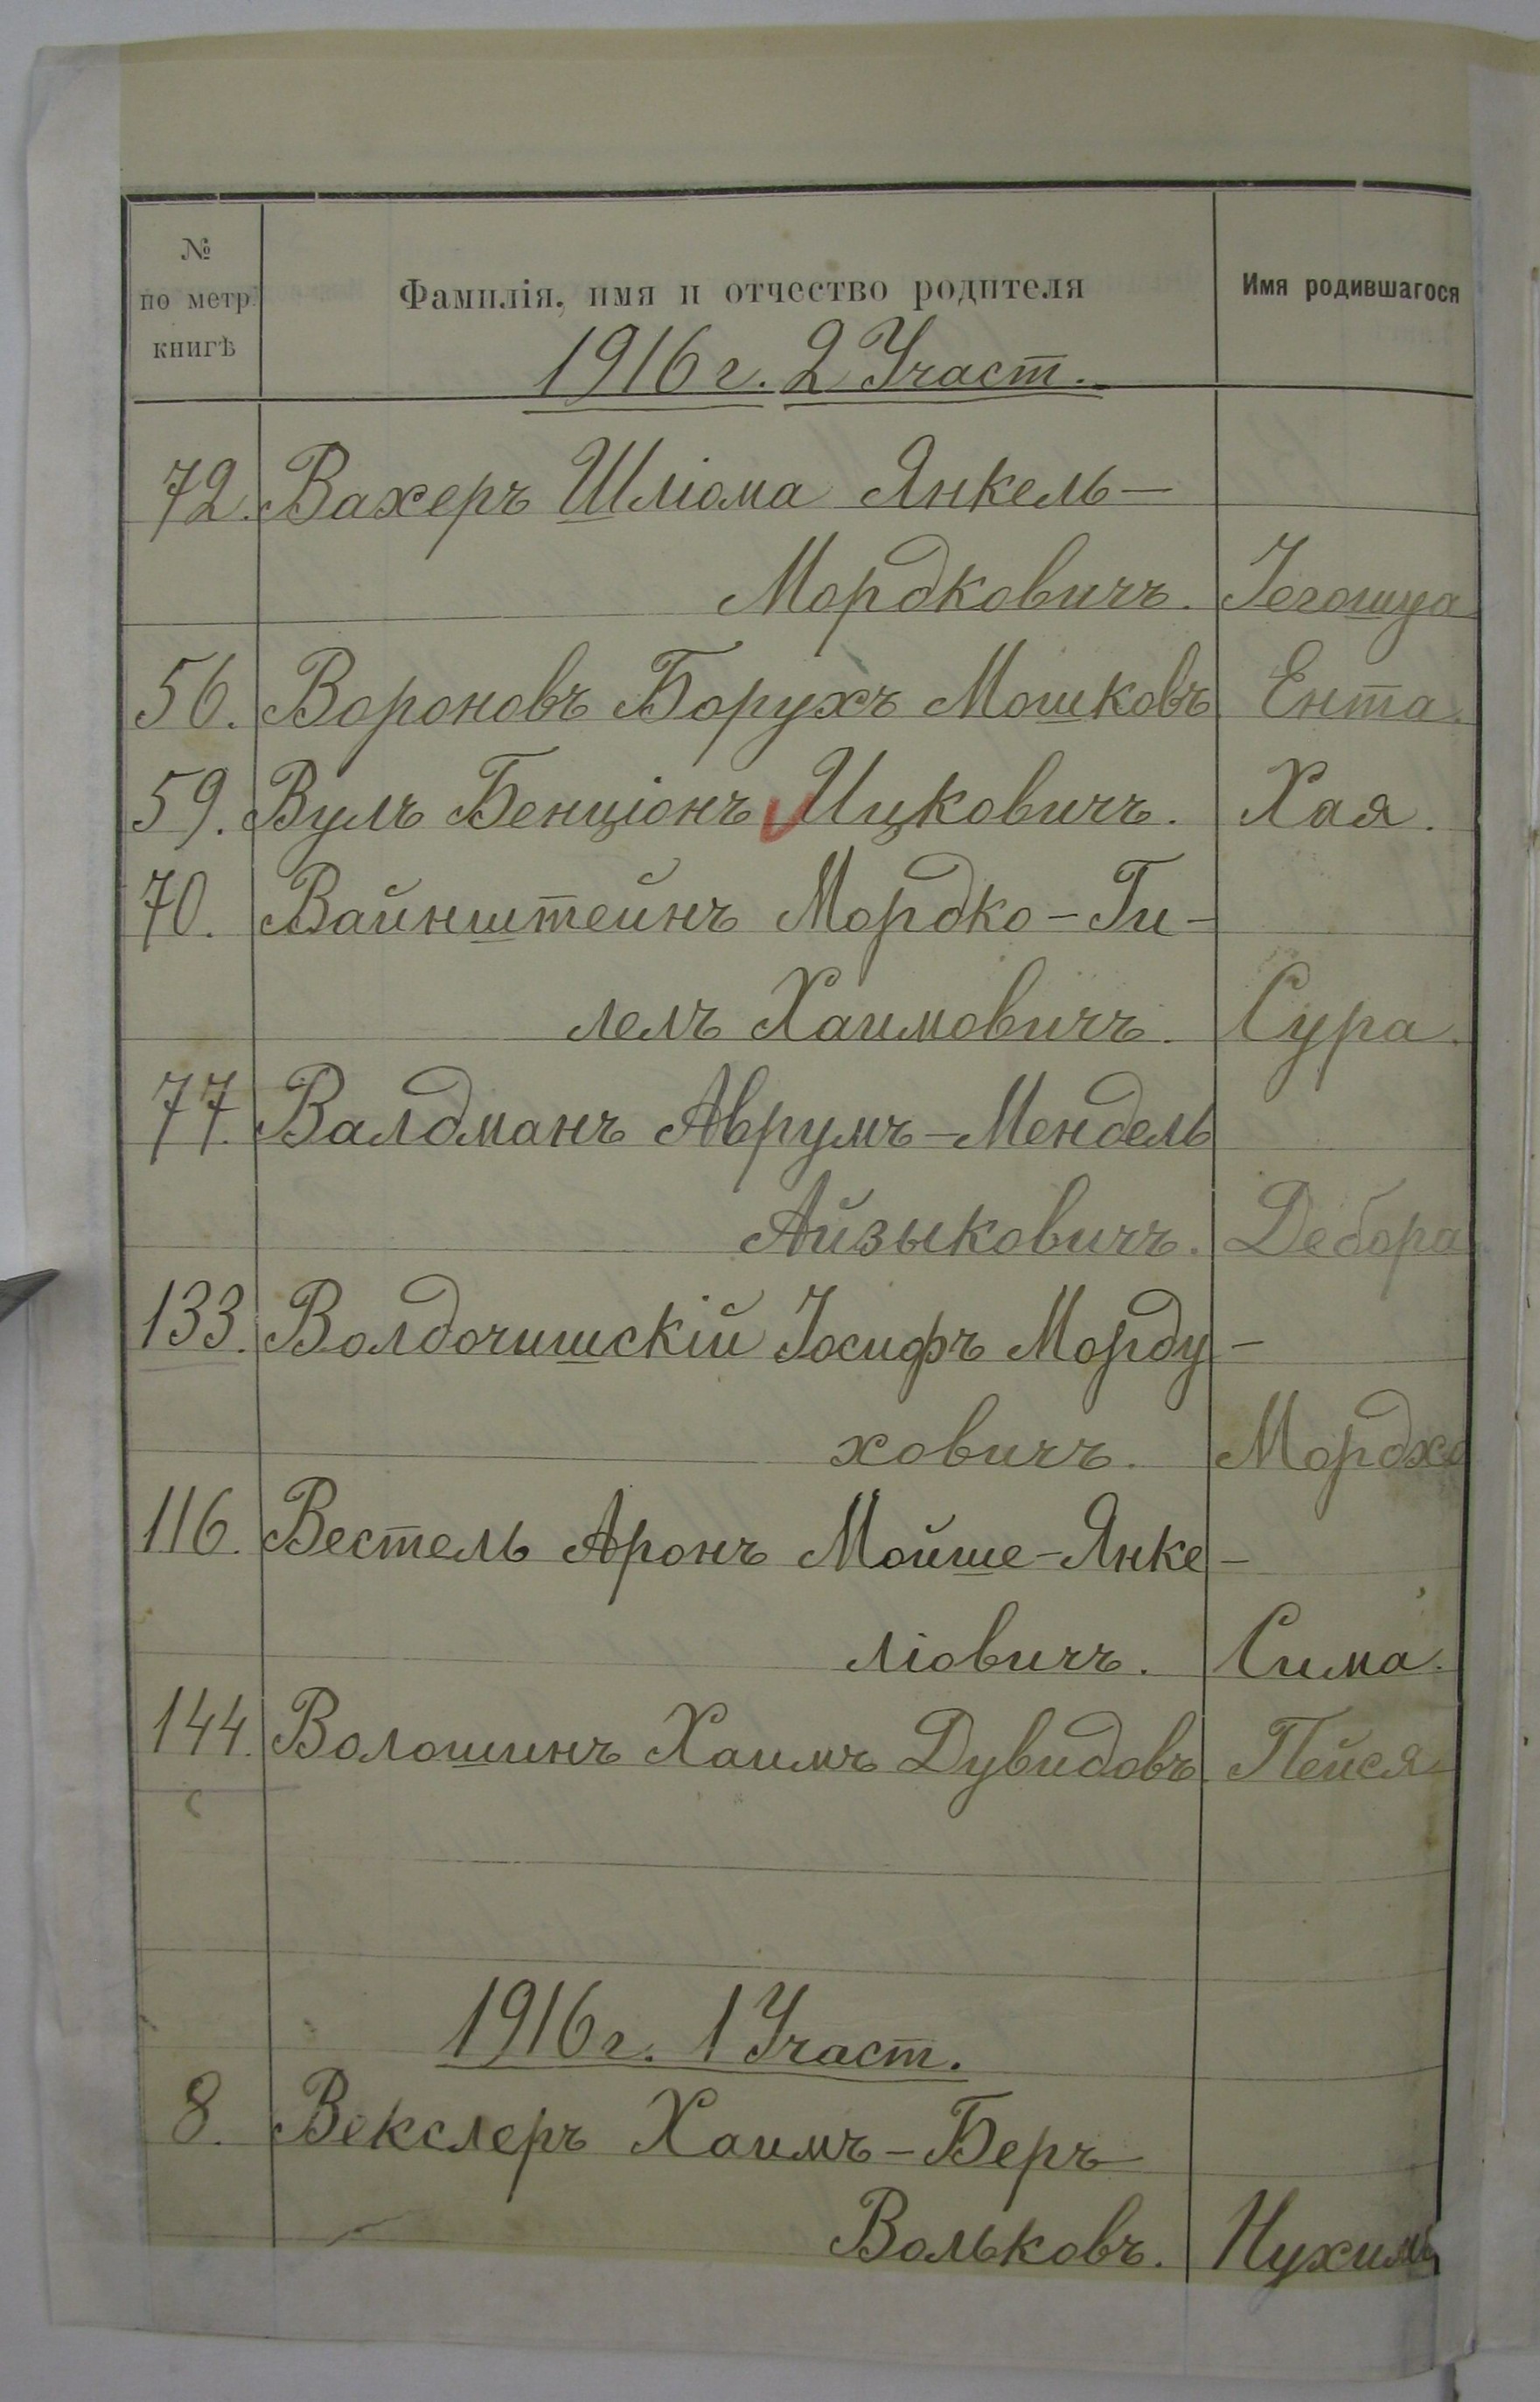 № по метр. книгѣ Фамилія, имя и отчество родителя Имя родившагося
1916 г. 2 Участ.
72. Вахеръ Шліома Янкель-
Мордковичъ. Іегошуа
56. Вороновъ Борухъ Мошковъ Ента.
59. Вулъ Бенціонъ Ицковичъ. Хая.
70. Вайнштейнъ Мордко-Ги-
лелъ Хаимовичъ. Сура.
77. Валдманъ Аврумъ-Мендель
Айзыковичъ. Дебора
133. Волдочишскій Іосифъ Морду-
ховичъ. Мордхо
116. Вестель Аронъ Мойше-Янке-
ліовичъ. Сима.
144. Волошинъ Хаимъ Дувидовъ. Пейся
1916 г. 1 Участ.
8. Векслеръ Хаимъ-Беръ
Вольковъ. Нухимъ